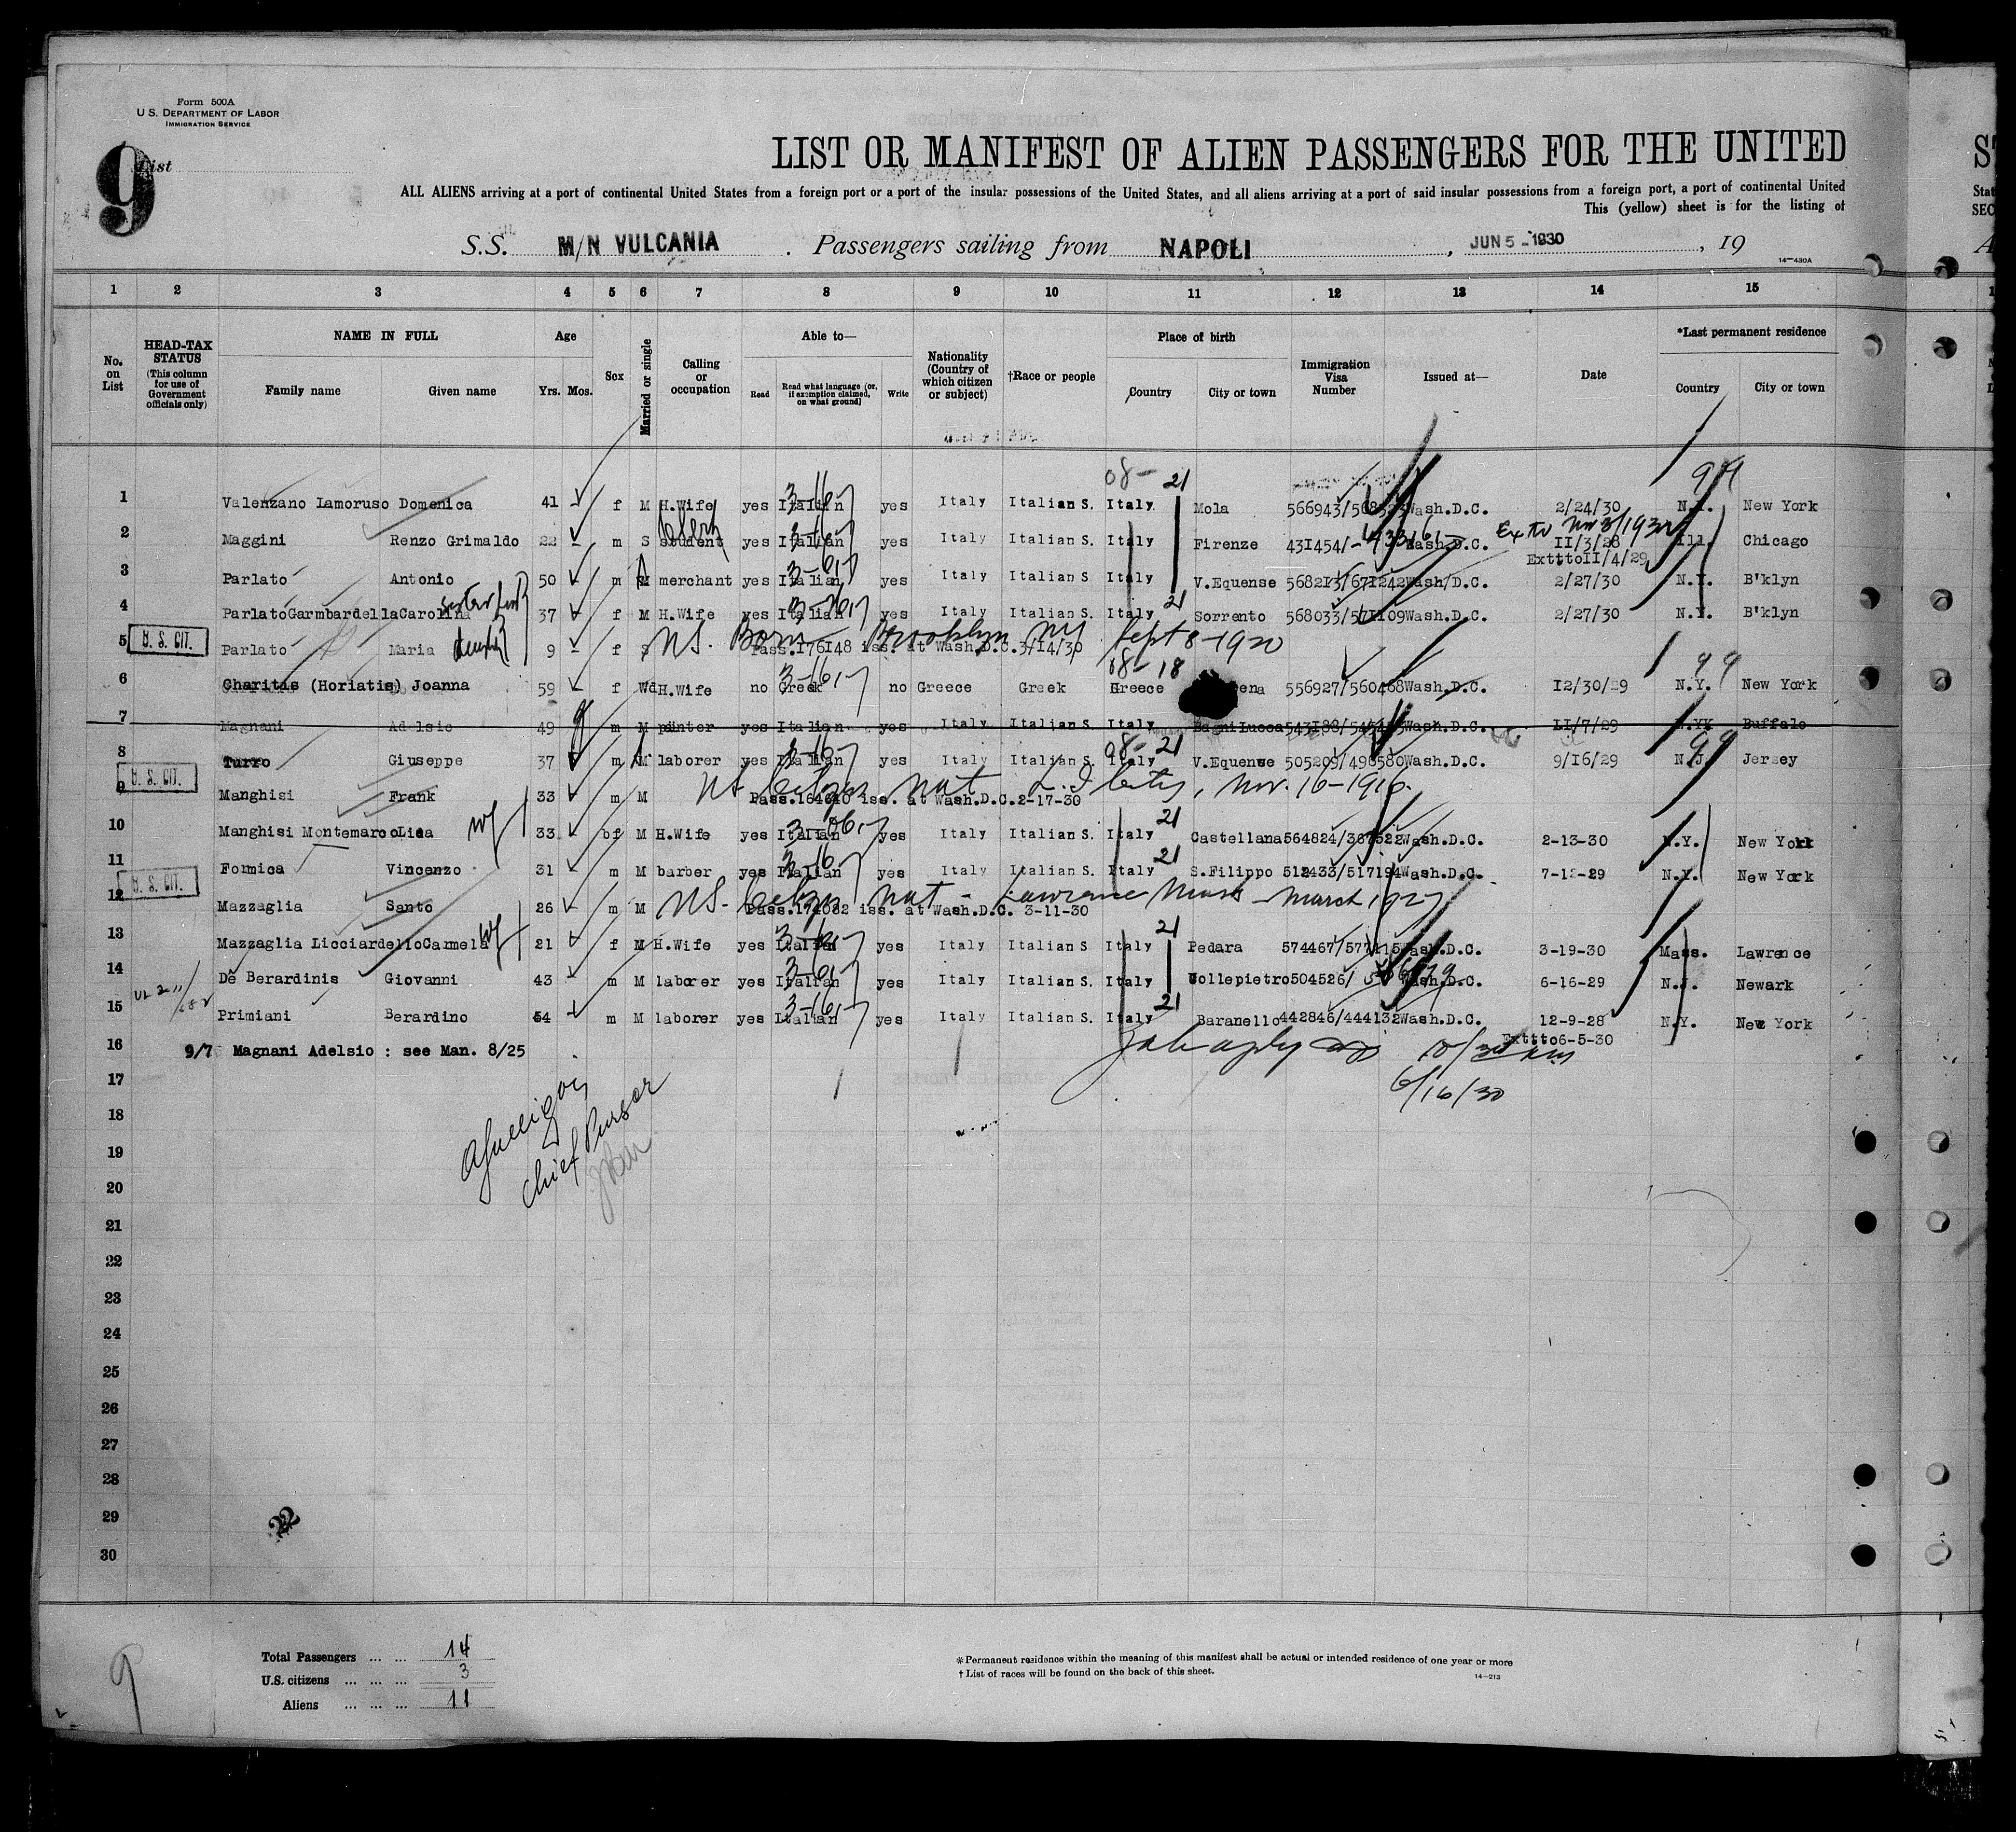 Form 500A
U. S. DEPARTMENT OF LABOR
IMMIGRATION SERVICE
9 List
LIST OR MANIFEST OF ALIEN PASSENGERS FOR THE UNITED
ALL ALIENS arriving at a port of continental United States from a foreign port or a port of the insular possessions of the United States, and all aliens arriving at a port of said insular possessions from a foreign port, a port of continental United
This (yellow) sheet is for the listing of
S.S. M/N VULCANIA . Passengers sailing from NAPOLI , JUN 5 - 1930 , 19
14-430A
1 2 3 4 5 6 7 8 9 10 11 12 13 14 15
No. on List
HEAD-TAX STATUS (This column for use of Government officials only)
NAME IN FULL Family name Given name
Age Yrs. Mos.
Sex
Married or single
Calling or occupation
Able to— Read Read what language (or, if exemption claimed, on what ground) Write
Nationality (Country of which citizen or subject)
†Race or people
Place of birth Country City or town
Immigration Visa Number
Issued at—
Date
*Last permanent residence Country City or town
08- 21 99
1 Valenzano Lamoruso Domenica 41 f M H.Wife yes Italian yes Italy Italian S. Italy Mola 566943/ Wash.D.C. 2/24/30 N.Y. New York
Clerk
2 Maggini Renzo Grimaldo 22 m S student yes Italian yes Italy Italian S. Italy Firenze 431454/ Wash.D.C. II/3/28 Ill. Chicago
Extto II/4/29
3 Parlato Antonio 50 m M merchant yes Italian yes Italy Italian S Italy V.Equense 568213/671242 Wash.D.C. 2/27/30 N.Y. B'klyn
4 Parlato Garmbardella Carolina 37 f M H.Wife yes Italian yes Italy Italian S. Italy 21 Sorrento 568033/571109 Wash.D.C. 2/27/30 N.Y. B'klyn
U. S. CIT.
5 Parlato Maria 9 f S US. Born Brooklyn NY Sept 8-1920
Pass.176148 iss. at Wash.D.C.3/14/30
08-18 99
6 Charitis (Horiatis) Joanna 59 f Wd H.Wife no Greek no Greece Greek Greece 556927/560468 Wash.D.C. 12/30/29 N.Y. New York
7 Magnani Adelsio 49 m M yes Italian yes Italy Italian S. Italy Bagni Lucca 543188/ Wash.D.C. 11/7/29 Buffalo
08- 21 99
8 Turro Giuseppe 37 m M laborer yes Italian yes Italy Italian S. Italy V.Equense 505209/498580 Wash.D.C. 9/16/29 N.J. Jersey
U. S. CIT.
9 Manghisi Frank 33 m M US citizen nat L.I. City, Nov. 16-1916.
iss. at Wash.D.C.2-17-30
10 Manghisi Montemarco Lisa wf 33 f M H.Wife yes Italian yes Italy Italian S. Italy 21 Castellana 564824/367522 Wash.D.C. 2-13-30 N.Y. New York
11 Formica Vincenzo 31 m M barber yes Italian yes Italy Italian S. Italy 21 S.Filippo 512433/517194 Wash.D.C. 7-13-29 N.Y. New York
U. S. CIT.
12 Mazzaglia Santo 26 m M US. citizen nat - Lawrence Mass - March 1927
Pass.174082 iss. at Wash.D.C. 3-11-30
13 Mazzaglia Licciardello Carmela wf 21 f M H.Wife yes Italian yes Italy Italian S Italy 21 Pedara 574467/577115 Wash.D.C. 3-19-30 Mass. Lawrence
14 De Berardinis Giovanni 43 m M laborer yes Italian yes Italy Italian S. Italy Collepietro 504526/ Wash.D.C. 6-16-29 N.J. Newark
15 Primiani Berardino 54 m M laborer yes Italian yes Italy Italian S. Italy 21 Baranello 442846/444132 Wash.D.C. 12-9-28 N.Y. New York
Extto 6-5-30
16 9/7 Magnani Adelsio : see Man. 8/25
17 6/16/30
18
Chief Purser
19
20
21
22
23
24
25
26
27
28
29
30
Total Passengers ... ... 14
U.S. citizens ... ... ... 3
Aliens ... ... ... 11
9
* Permanent residence within the meaning of this manifest shall be actual or intended residence of one year or more
† List of races will be found on the back of this sheet.
14-213